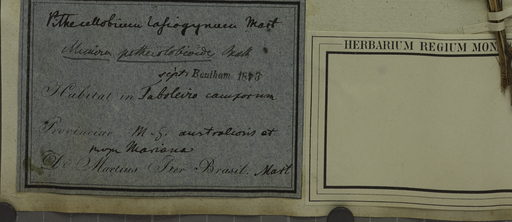 Pithecellobium lasiogynum Mart
Mimosa pithecolobioide Mart
scrps. Bentham. 1875
Habitat in Taboleiro camporum
Provinciae M. G. australioris et
prope Mariana
Dr Martius Iter Brasil. Mart
HERBARIUM REGIUM MON